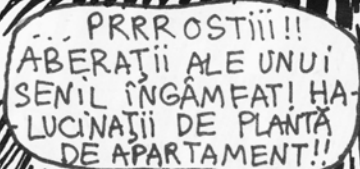 ... PRRROSTiii!!
ABERAȚii ALE UNUi
SENiL ÎNGÂMFAT! HA-
LUCiNAȚii DE PLANTĂ
DE APARTAMENT!!